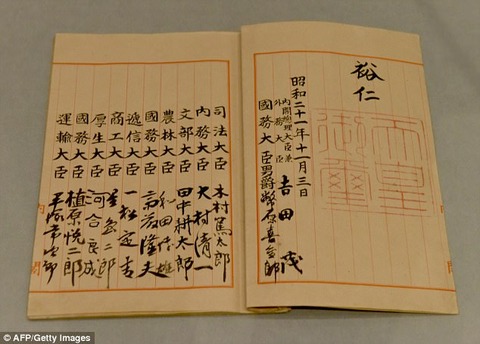 裕仁
天皇御璽
昭和二十一年十一月三日
内閣總理大臣兼
外務大臣 吉田茂
國務大臣 男爵 幣原喜重郎
司法大臣 木村篤太郎
内務大臣 大村清一
文部大臣 田中耕太郎
農林大臣 和田博雄
國務大臣 斎藤隆夫
遞信大臣 一松定吉
商工大臣 星島二郎
厚生大臣 河合良成
國務大臣 植原悦二郎
運輸大臣 平塚常次郎
© AFP/Getty Images